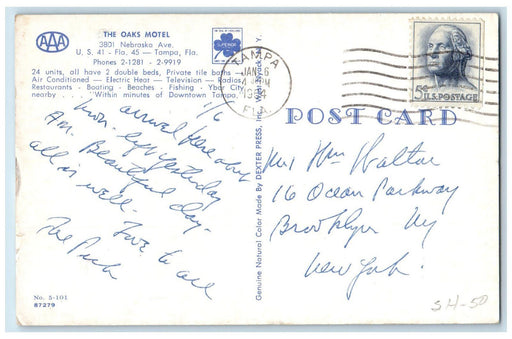 AAA
THE OAKS MOTEL
3801 Nebraska Ave.
U. S. 41 - Fla. 45 — Tampa, Fla.
Phones 2-1281 - 2-9919
24 units, all have 2 double beds, Private tile baths
Air Conditioned — Electric Heat — Television — Radios
Restaurants - Boating - Beaches - Fishing - Ybor City
nearby . . . Within minutes of Downtown Tampa.
SUPERIOR
TAMPA
JAN 6
PM
FLA.
5¢ U.S. POSTAGE
POST CARD
1/6
arrived here about
noon. left yesterday
Am. Beautiful day.
all is well. Love to all
No. S-101
87279
Genuine Natural Color Made By DEXTER PRESS, Inc. West Nyack, N. Y.
Mrs Wm Walton
16 Ocean Parkway
Brooklyn Ny
New York.
SH-50